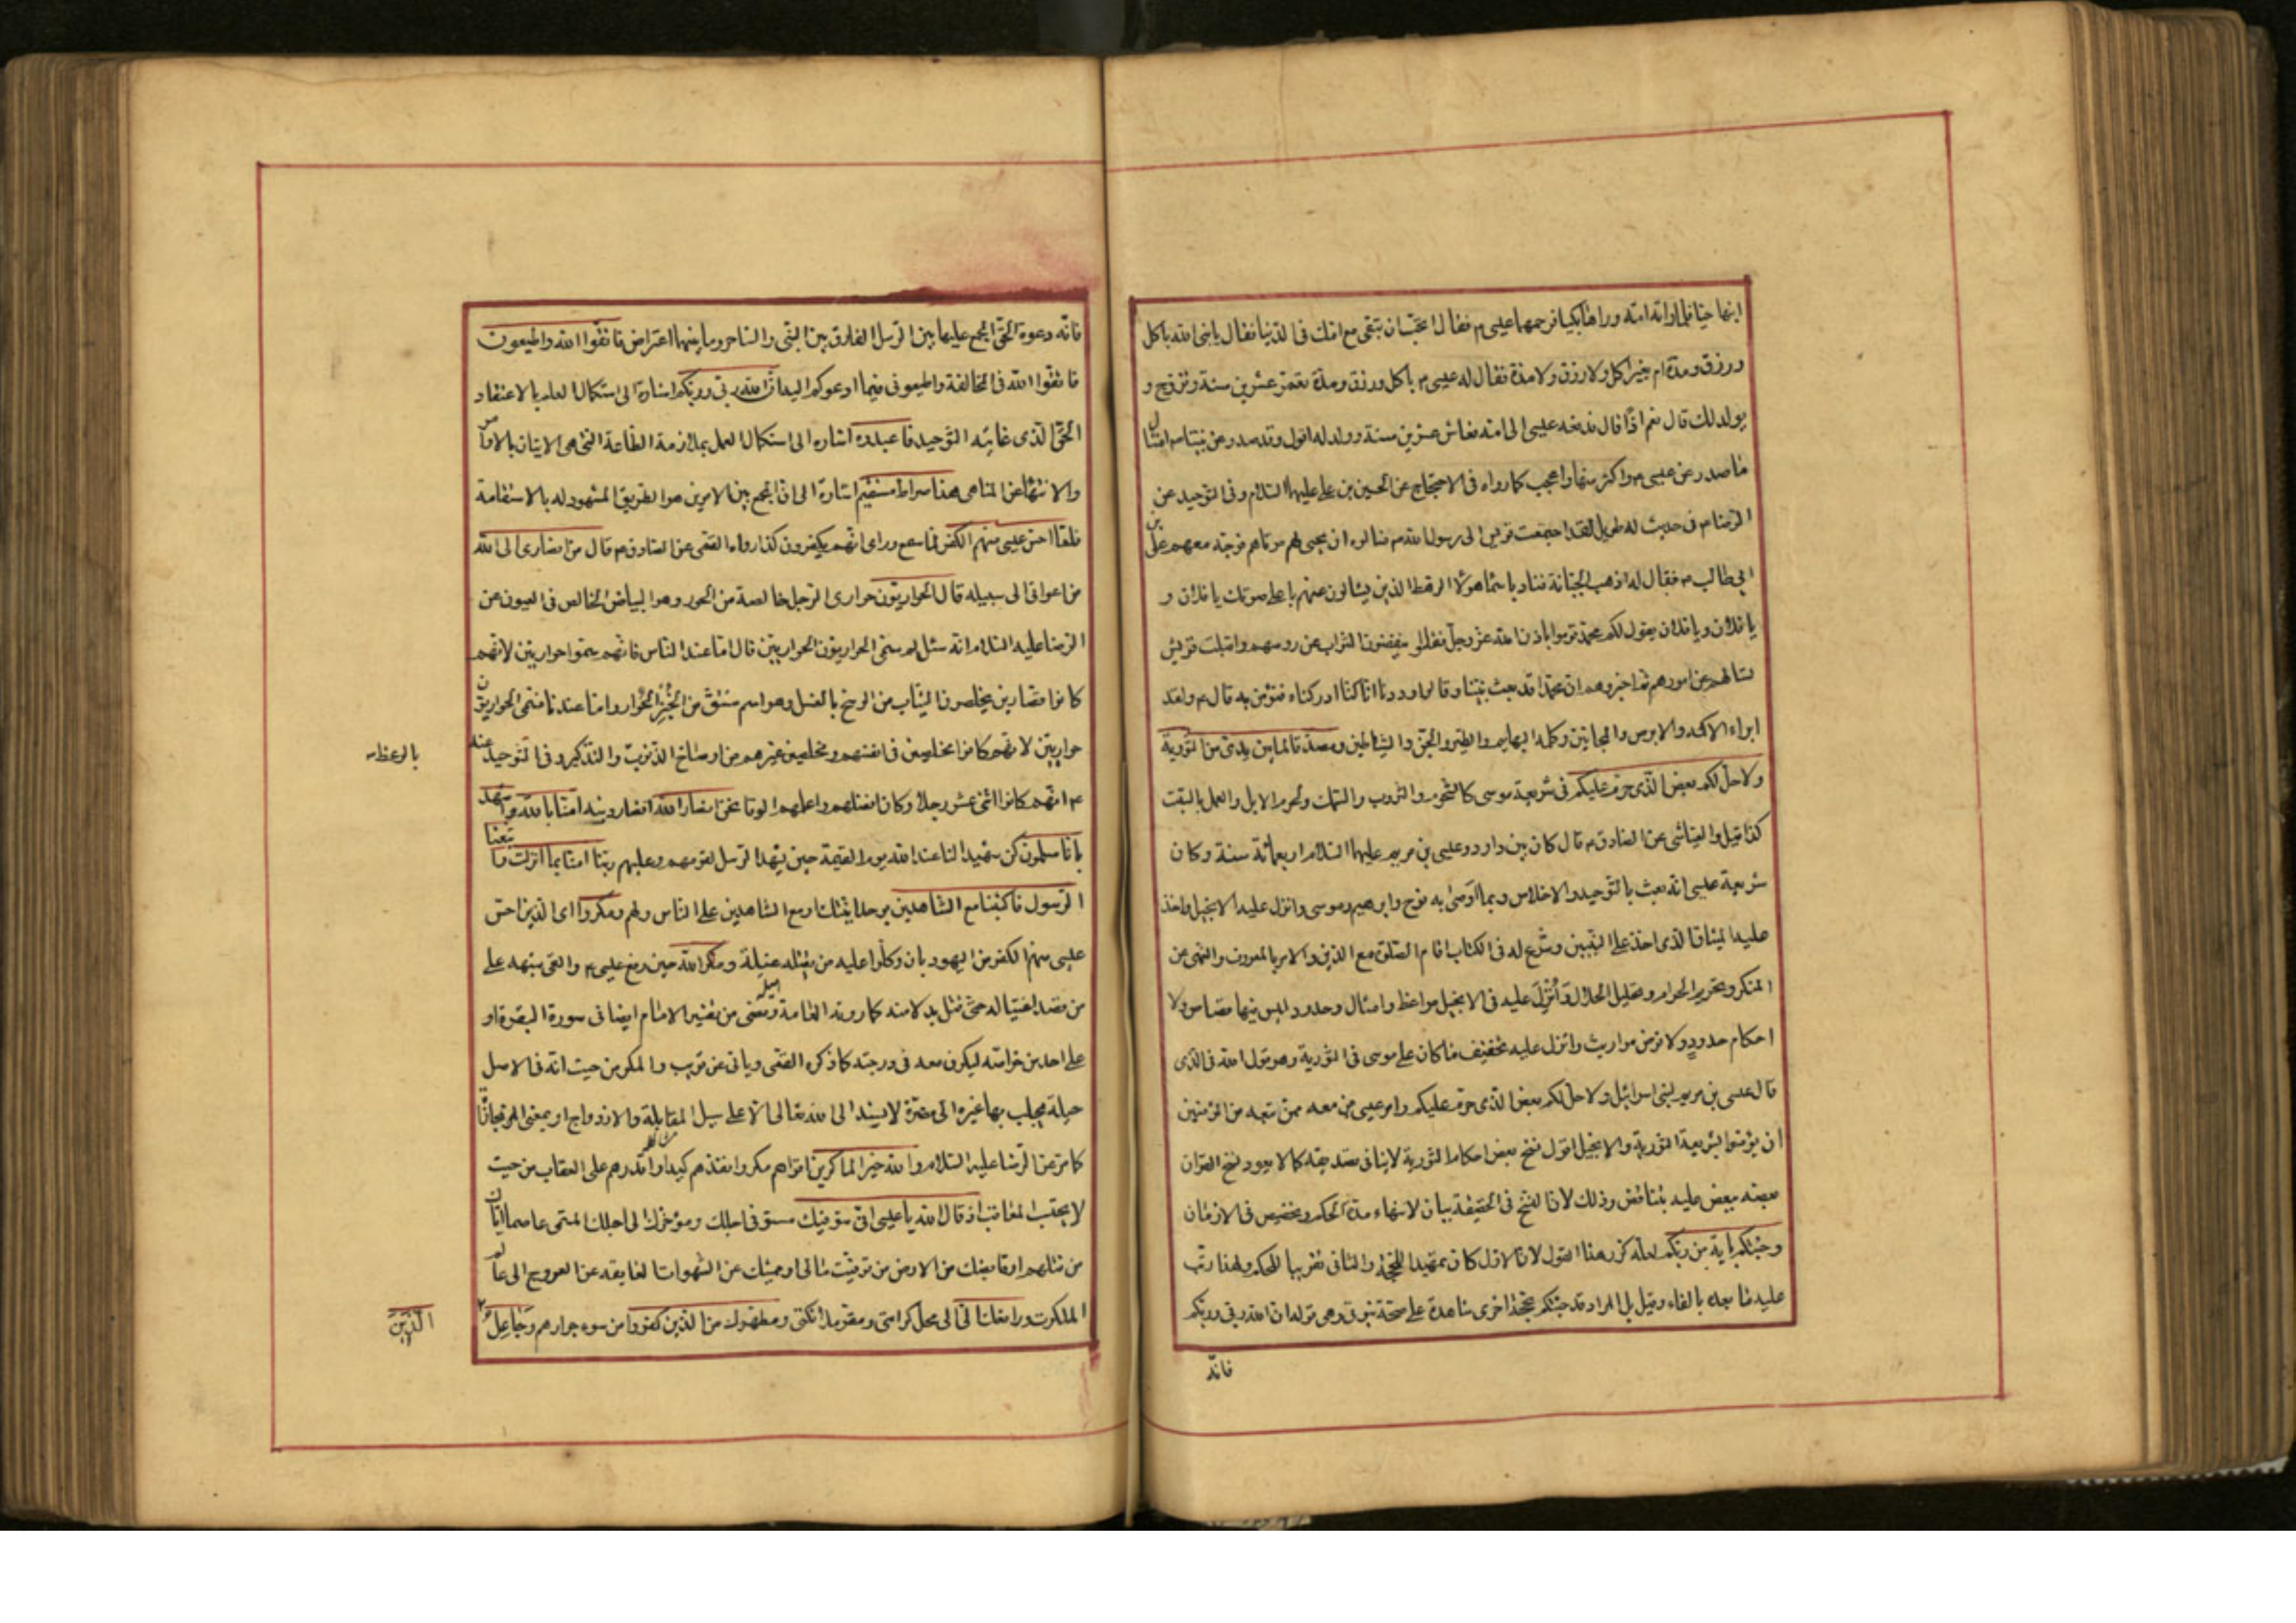 ابنها حيّا فلما راته امّه وراها بكيا فرحمهما عيسى م فقال اتحبّ ان تبقى مع امّك فى الدّنيا فقال يا نبى الله باكل
ورزق ومدة ام بغير اكل ولا رزق ولا مدّة فقال له عيسى م باكل ورزق ومدّة تعمّر عشرين سنة وتزوّج و
يولد لك قال نعم اذًا قال فدفعه عيسى الى امّه فعاش عشرين سنة وولد له اقول وقد صدر عن نبيّنا ص امثال
ما صدر عن عيسى م واكثر منها واعجب كما رواه فى الاحتجاج عن الحسين بن على عليهما السّلام وفى التوحيد عن
الرضا م فى حديث له طويل لقد اجتمعت قريش الى رسول الله ص فسالوه ان يحيى لهم موتاهم فوجّه معهم على بن
ابى طالب م فقال له اذهب الى الجبّانة فناد باسماء هؤلاء الرهط الذين يسالون عنهم باعلى صوتك يا فلان و
يا فلان ويا فلان يقول لكم محمّد قوموا باذن الله عزّ وجلّ فقاموا ينفضون التّراب عن رؤسهم واقبلت قريش
تسالهم عن امورهم ثم اخبروهم ان محمّدا قد بعث نبيّا وقالوا وددنا انا كنّا ادركناه فنؤمن به قال م ولقد
ابراء الاكمه والابرص والمجانين وكلّمه البهايم والطير والجنّ والشياطين ومصدّقا لما بين يدىّ من التّورية
ولاحلّ لكم بعض الّذى حرّم عليكم فى شريعة موسى كالشّحوم والثّروب والسّمك ولحوم الابل والعمل بالسّبت
كذا قيل والعيّاشى عن الصّادق م قال كان بين داود وعيسى بن مريم عليهما السّلام اربعمائة سنة وكان
شريعة عيسى انّه بعث بالتّوحيد والاخلاص وبما اوصى به نوح وابرهيم وموسى وانزل عليه الانجيل واخذ
عليه الميثاق الّذى اخذ على النّبيّين وشرّع له فى الكتاب اقام الصّلوة مع الدّين والامر بالمعروف والنّهى عن
المنكر وتحريم الحرام وتحليل الحلال وَأُنْزِلَ عليه فى الانجيل مواعظ وامثال وحدود ليس فيها قصاص ولا
احكام حدودٍ ولا فرض مواريث وانزل عليه تخفيف ما كان على موسى فى التّورية وهو قول الله فى الّذى
قال عيسى بن مريم لبنى اسرائيل ولاحلّ لكم بعض الّذى حرّم عليكم وامر عيسى من معه ممّن تبعه من المؤمنين
ان يؤمنوا بشريعة التّورية والانجيل اقول نسخ بعض احكام التّورية لا ينافى تصديقه كما لا يعود نسخ القران
بعضه ببعض عليه بتناقض وذلك لانّ النّسخ فى الحقيقة بيان لانتهاء مدّة الحكم وتخصيص فى الازمان
وجئتكم باية من ربّكم لعلّه كرّر هذا القول لانّ الاوّل كان تمهيدا للحجّة والثّانى تقريبا للحكم ولهذا رتّب
عليه ما بعده بالفاء وقيل بل المراد قد جئتكم بحجّة اخرى شاهدة على صحّة نبوّتى وهى قوله ان الله ربّى وربّكم
فانّه
فانّه دعوة الحقّ المجمع عليها بين الرّسل الفارق بين النّبى والسّاحر وما بينهما اعتراض فاتّقوا الله واطيعون
فاتّقوا الله فى المخالفة واطيعونى فيما ادعوكم اليه انّ الله ربّى وربّكم اشارة الى استكمال العلم بالاعتقاد
الحقّ الّذى غايته التّوحيد فاعبدوه اشاره الى استكمال العمل بملازمة الطّاعة الّتى هى الاتيان بالاوامر
والانتهاء عن المناهى هذا صراط مستقيم اشارة الى انّ الجمع بين الامرين هو الطّريق المشهود له بالاستقامة
فلمّا احسّ عيسى منهم الكفر لمّا سمع وراى انّهم يكفرون كذا رواه القمّى عن الصّادق م قال من انصارى الى الله
من اعوانى الى سبيله قال الحواريّون حوارى الرّجل خالصة من الحور وهو البياض الخالص فى العيون عن
الرّضا عليه السّلام انّه سئل لم سمّى الحواريّون الحواريّين قال امّا عند النّاس فانّهم سمّوا حواريّين لانّهم
كانوا قصّارين يخلصون الثّياب من الوسخ بالغسل وهو اسم مشتقّ من الخُبز الحُوّار وامّا عندنا فسمّى الحواريّون
حواريّين لانّهم كانوا مخلصين فى انفسهم ومخلصين غيرهم من اوساخ الذّنوب والتّذكير وفى التّوحيد عنه
بالوعظ
م انّهم كانوا اثنى عشر رجلا وكان افضلهم واعلمهم الوقا نحن انصار الله انصار دينه امنّا بالله واشهد
بانّا مسلمون كن شهيدا لنا عند الله يوم القيمة حين يشهد الرّسل لقومهم وعليهم ربّنا امنّا بما انزلت واتّبعنا
الرّسول فاكتبنا مع الشّاهدين بوحدانيّتك او مع الشّاهدين على النّاس ولهم ومكروا اى الّذين احسّ
عيسى منهم الكفر من اليهود بان وكلوا عليه من يقتله غيلة ومكر الله حين رفع عيسى م والقى شبهه على
من قصد اغتياله حتّى قتل بدلا منه كما روته العامة وقضى من تفسير الامام ايضا فى سورة البقرة او
على احد من خواصّه ليكون معه فى درجته كما ذكره القمّى وياتى عن قريب والمكر من حيث انّه فى الاصل
حيلة يجلب بها غيره الى مضرّة لا يسند الى الله تعالى الّا على سبيل المقابلة والازدواج او بمعنى المجازاة
كما مرّ عن الرّضا عليه السّلام والله خير الماكرين اقواهم مكرا وانفذهم كيدا واقدرهم على العقاب من حيث
لا يحتسب المعاقب اذ قال الله يا عيسى انّى متوفّيك مستوفى اجلك ومؤخّرك الى اجلك المسمّى عاصما ايّاك
من قتلهم او قابضك من الارض من توفّيت مالى او مميتك عن الشّهوات العايقة عن العروج الى عالم
الملكوت ورافعك الىّ الى محلّ كرامتى ومقرّ ملائكتى ومطهّرك من الّذين كفروا من سوء جوارهم وَجَاعِلُ
الّذين